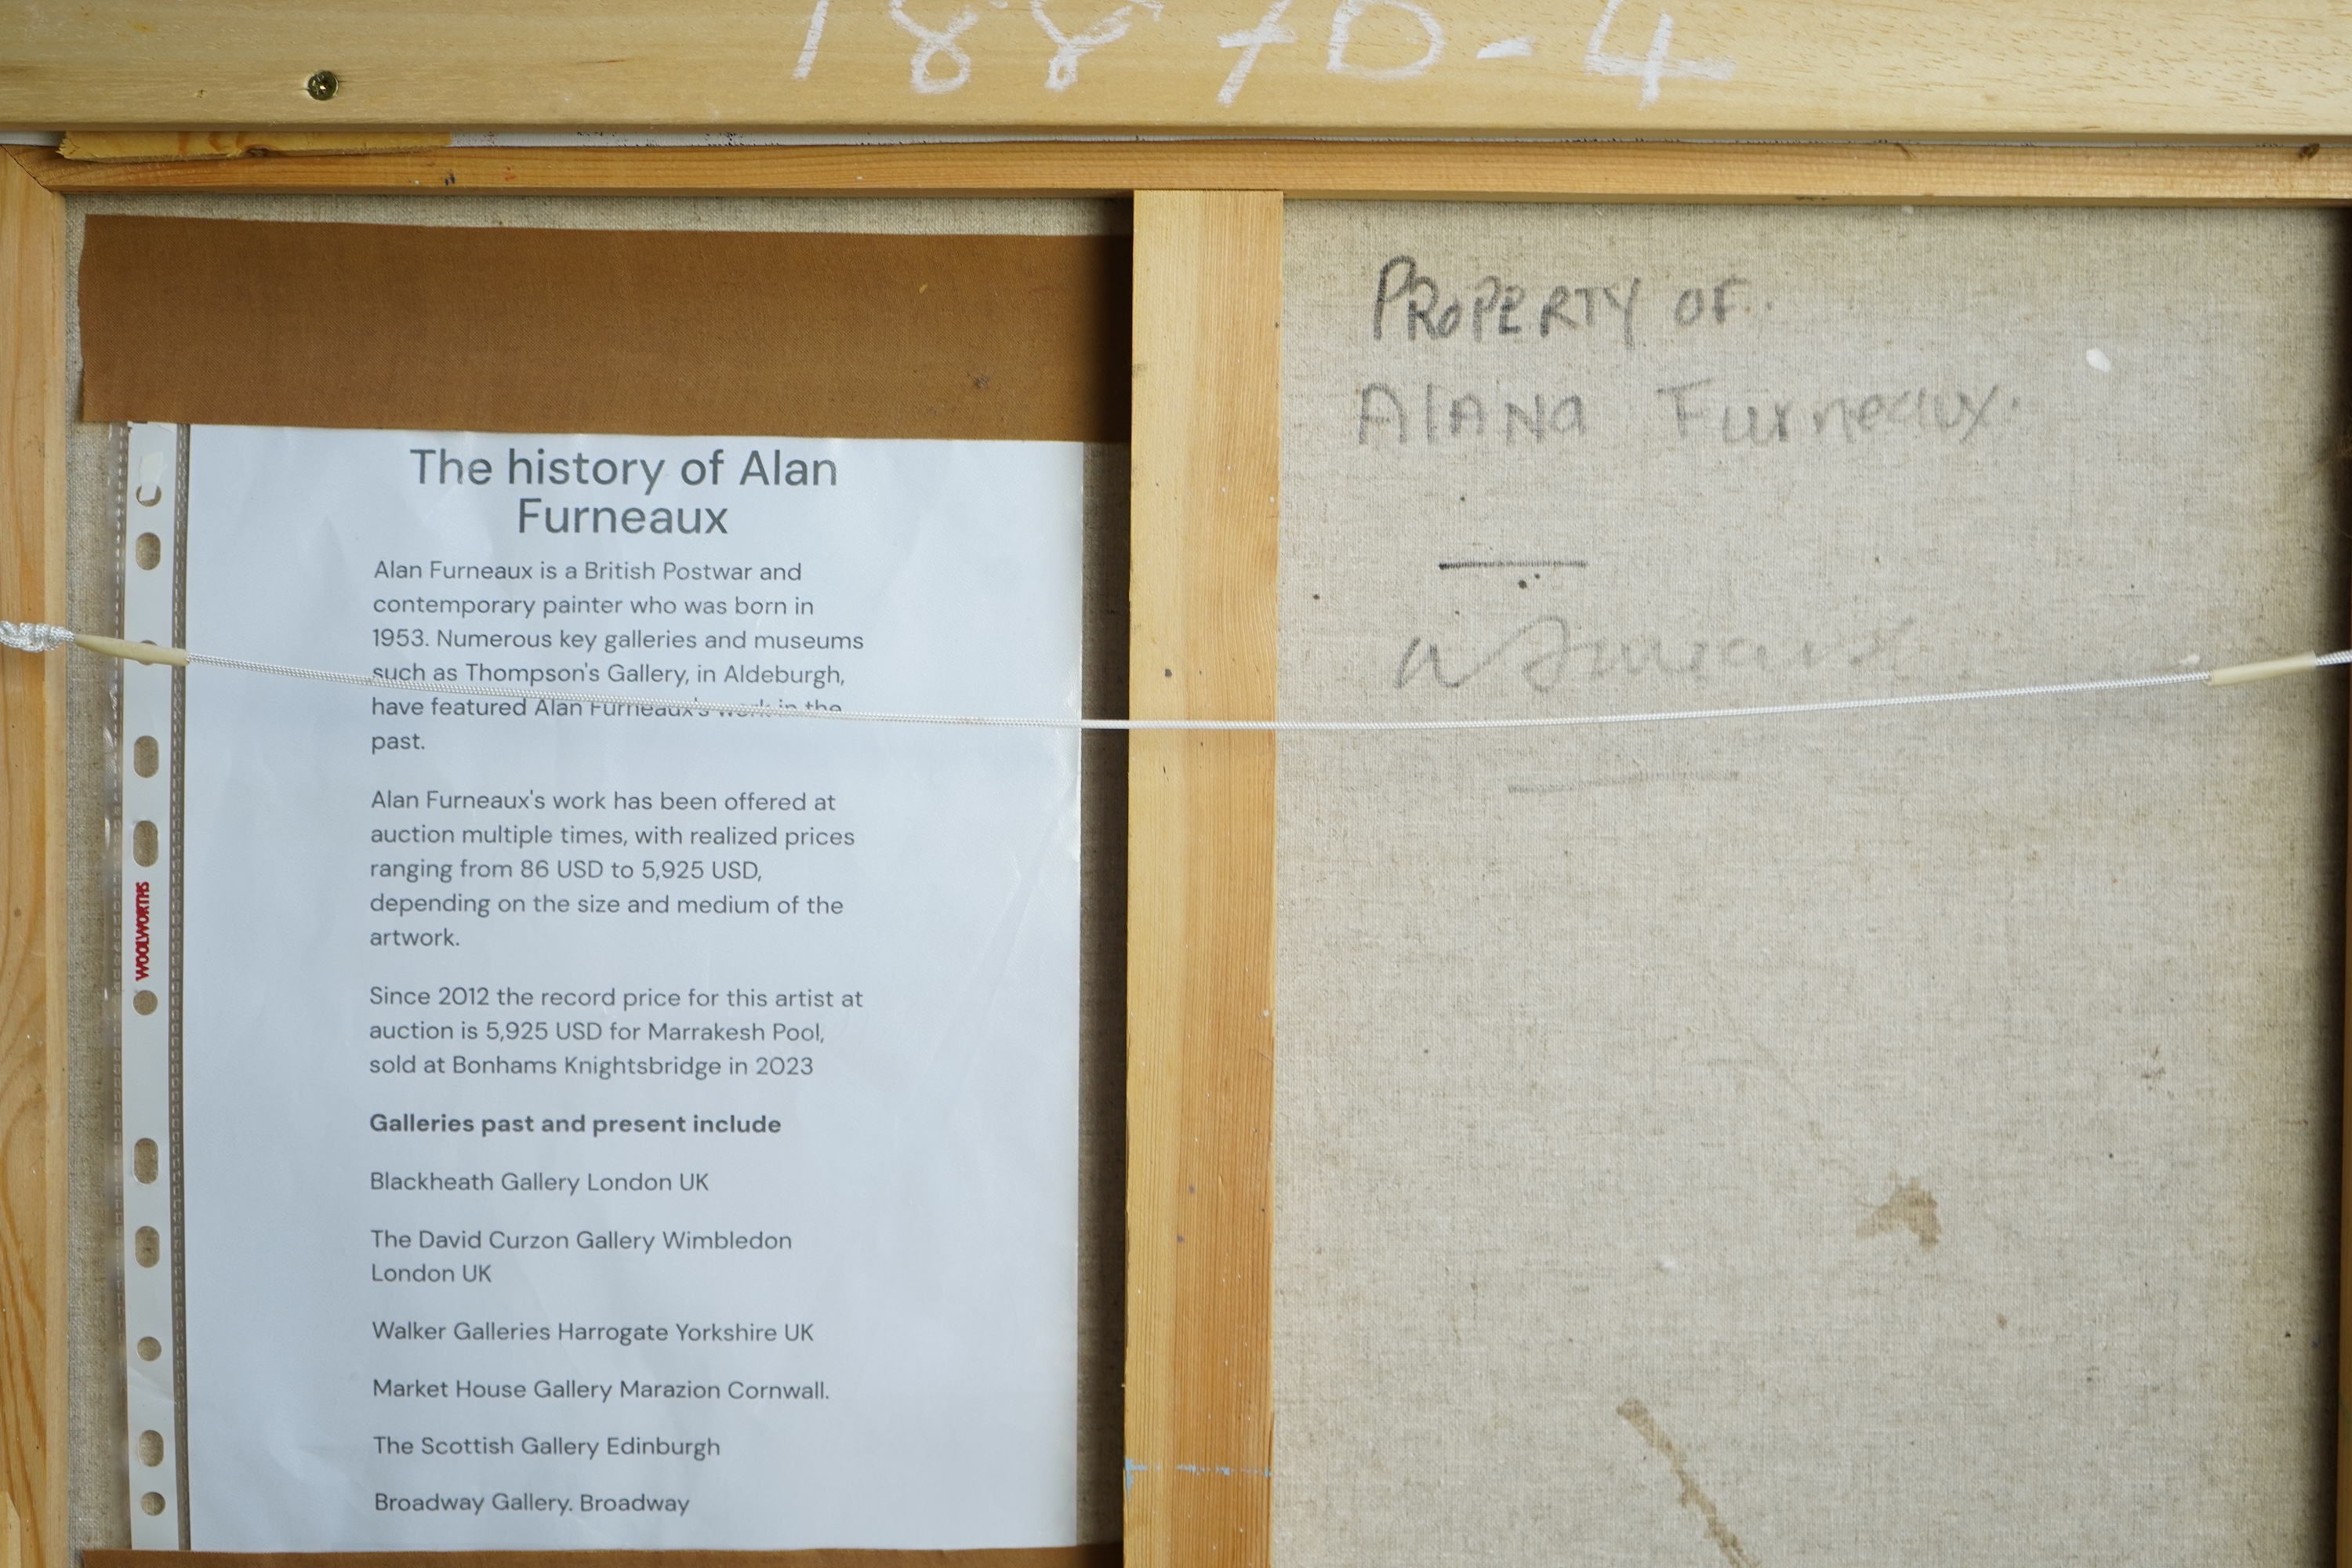 The history of Alan
Furneaux
Alan Furneaux is a British Postwar and
contemporary painter who was born in
1953. Numerous key galleries and museums
such as Thompson's Gallery, in Aldeburgh,
have featured Alan Furneaux's work in the
past.
Alan Furneaux's work has been offered at
auction multiple times, with realized prices
ranging from 86 USD to 5,925 USD,
depending on the size and medium of the
artwork.
Since 2012 the record price for this artist at
auction is 5,925 USD for Marrakesh Pool,
sold at Bonhams Knightsbridge in 2023
Galleries past and present include
Blackheath Gallery London UK
The David Curzon Gallery Wimbledon
London UK
Walker Galleries Harrogate Yorkshire UK
Market House Gallery Marazion Cornwall.
The Scottish Gallery Edinburgh
Broadway Gallery. Broadway
WOOLWORTHS
PROPERTY OF.
AlANa Furneaux.